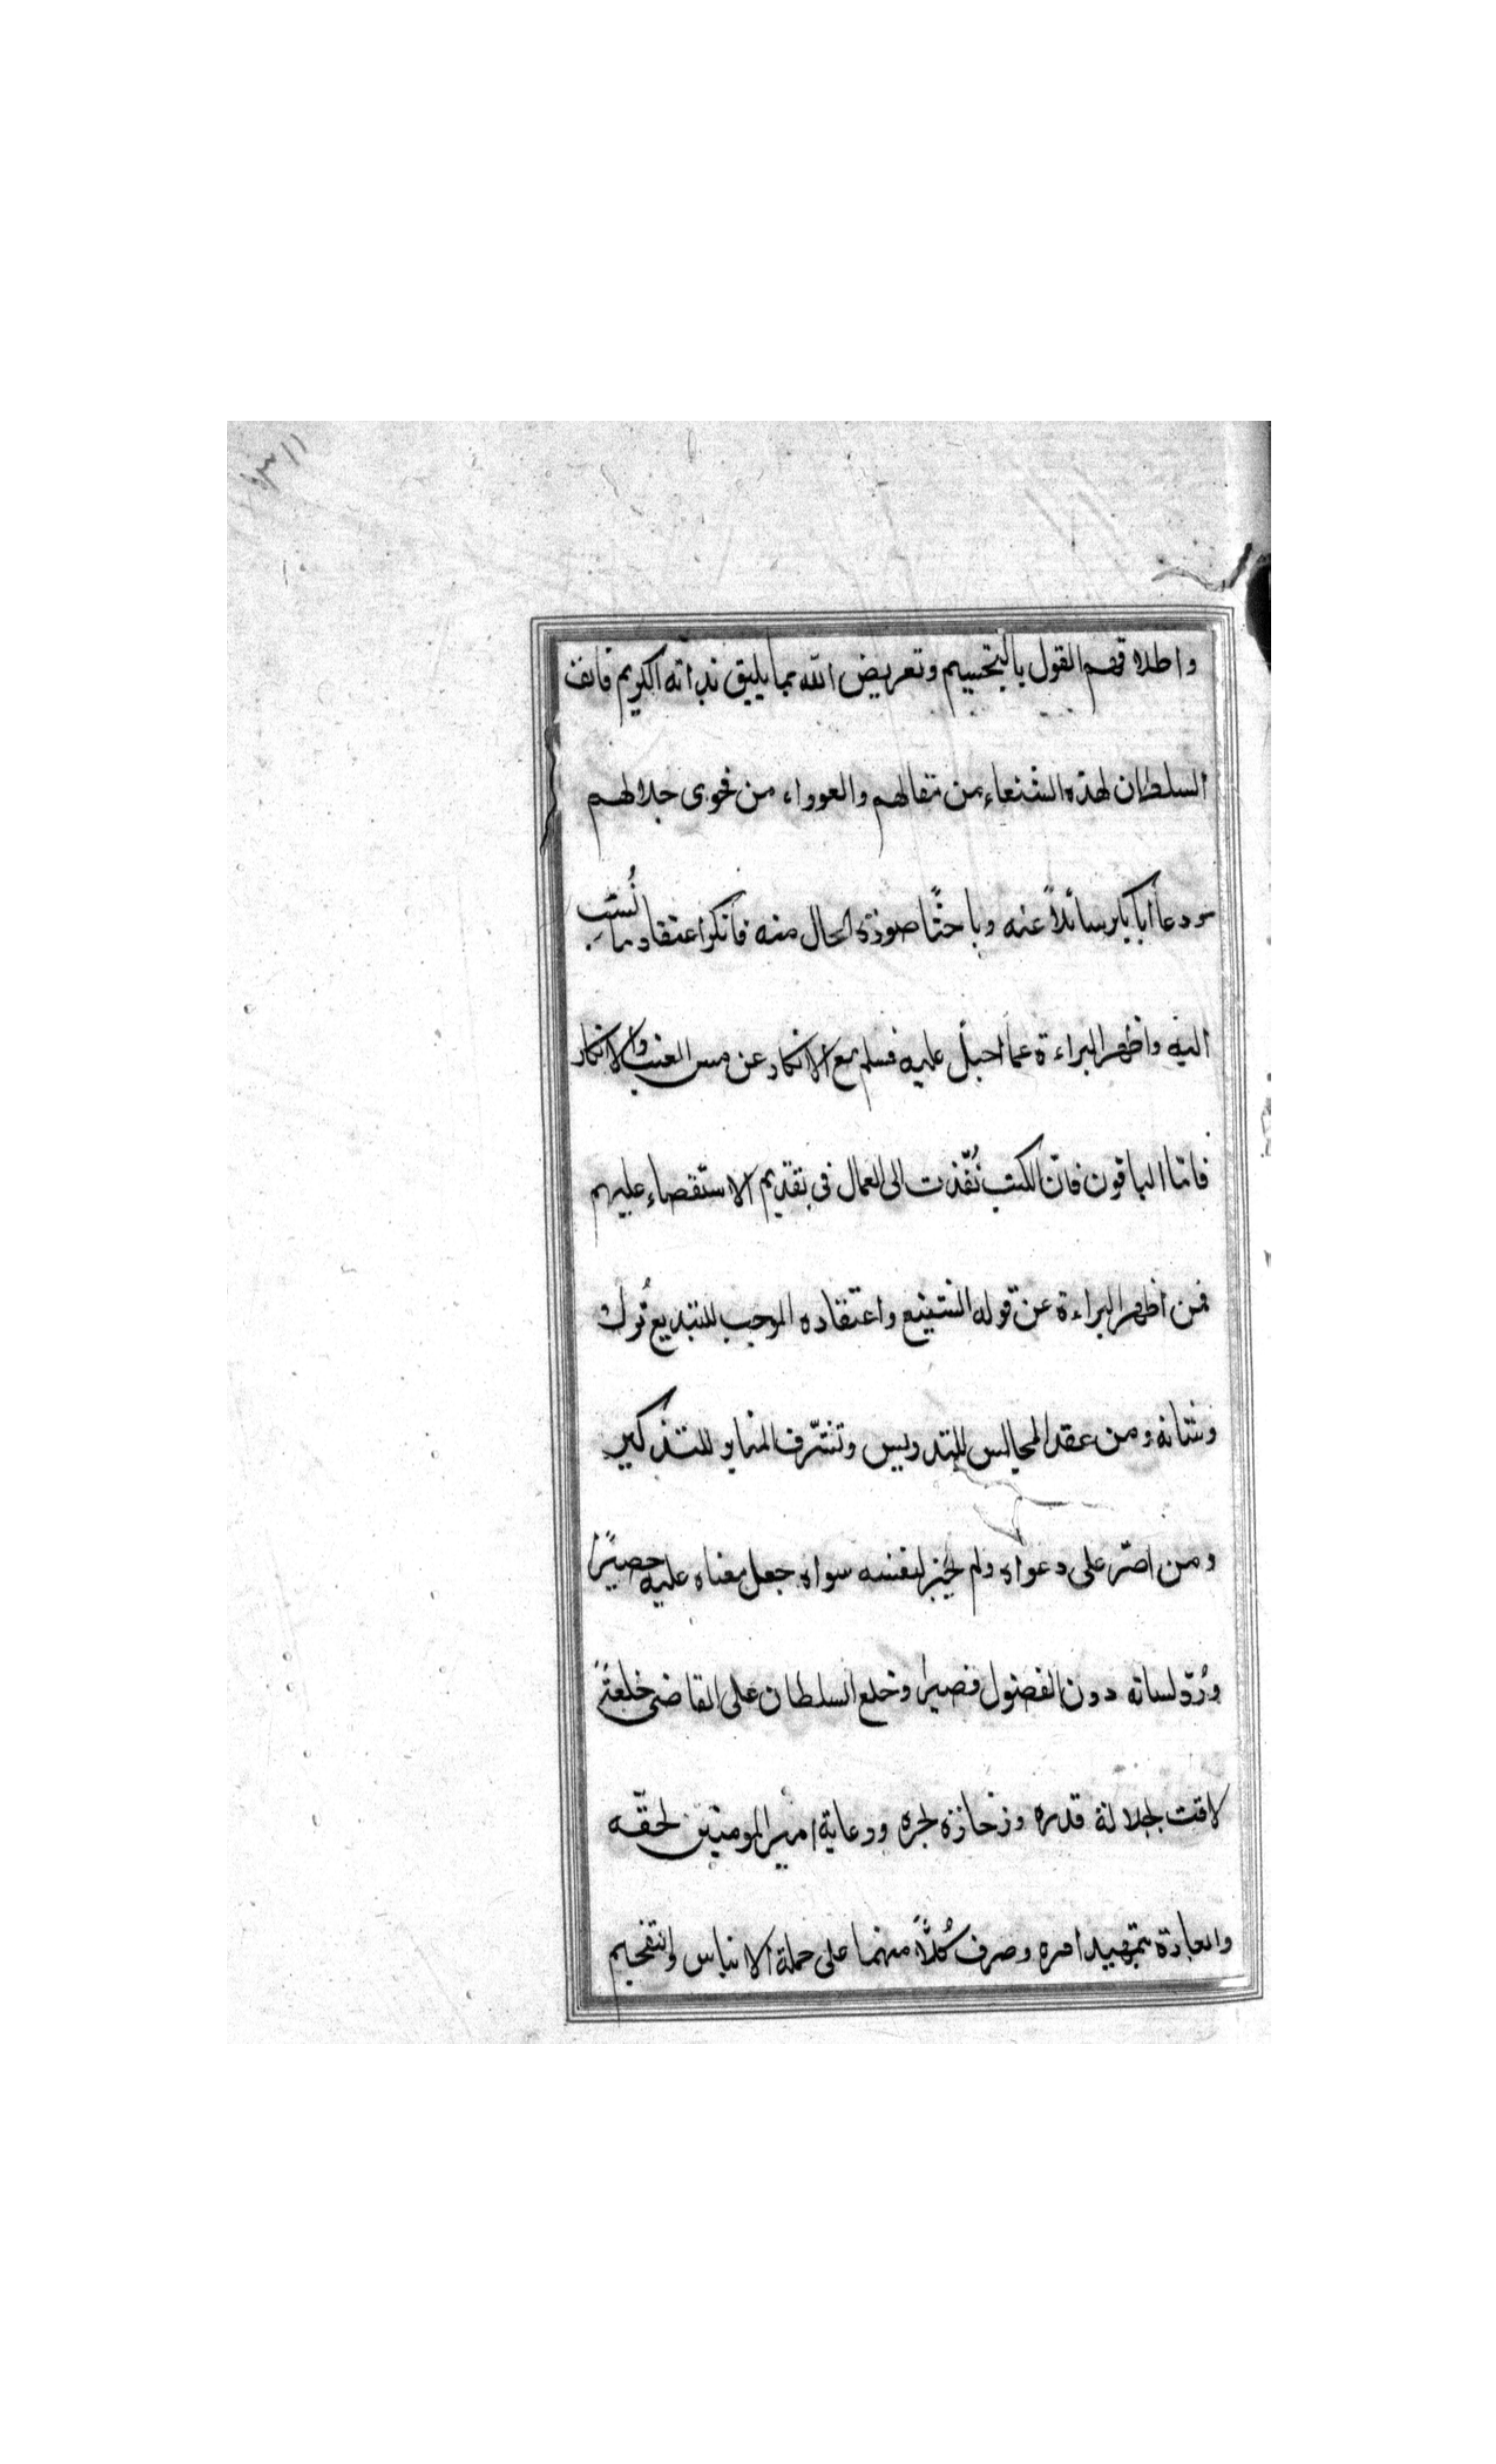 واطلاقهم القول بالتجسيم وتعريض الله بما يليق بذاته الكريم فانف
السلطان لهذه الشنعاء من مقالهم والعوراء من فحوى جدالهم
ودعا أبا بكر سائلاً عنه وباحثًا صورة الحال منه فأنكر اعتقاد ما نُسب
اليه واظهر البراءة عما احيل عليه فسلم مع الانكار عن مس العتب والانكار
فامّا الباقون فانّ الكتب نُفّذت الى العمال فى تقديم الاستقصاء عليهم
فمن أظهر البراءة عن قوله الشنيع واعتقاده الموجب للتبديع تُرك
وشانه ومن عقد المجالس للتدريس وتشرّف المنابر للتذكير
ومن اصرّ على دعواه ولم يختر لنفسه سواه جعل مغناه عليه حصيرًا
ورُدّ لسانه دون الفضول قصيرا وخلع السلطان على القاضى خلعةً
لاقت بجلالة قدره وزخارة بحره ورعاية امير المومنين لحقّه
والعبارة بتمهيد امره وصرف كُلاًّ منهما على جملة الايناس والتفخيم